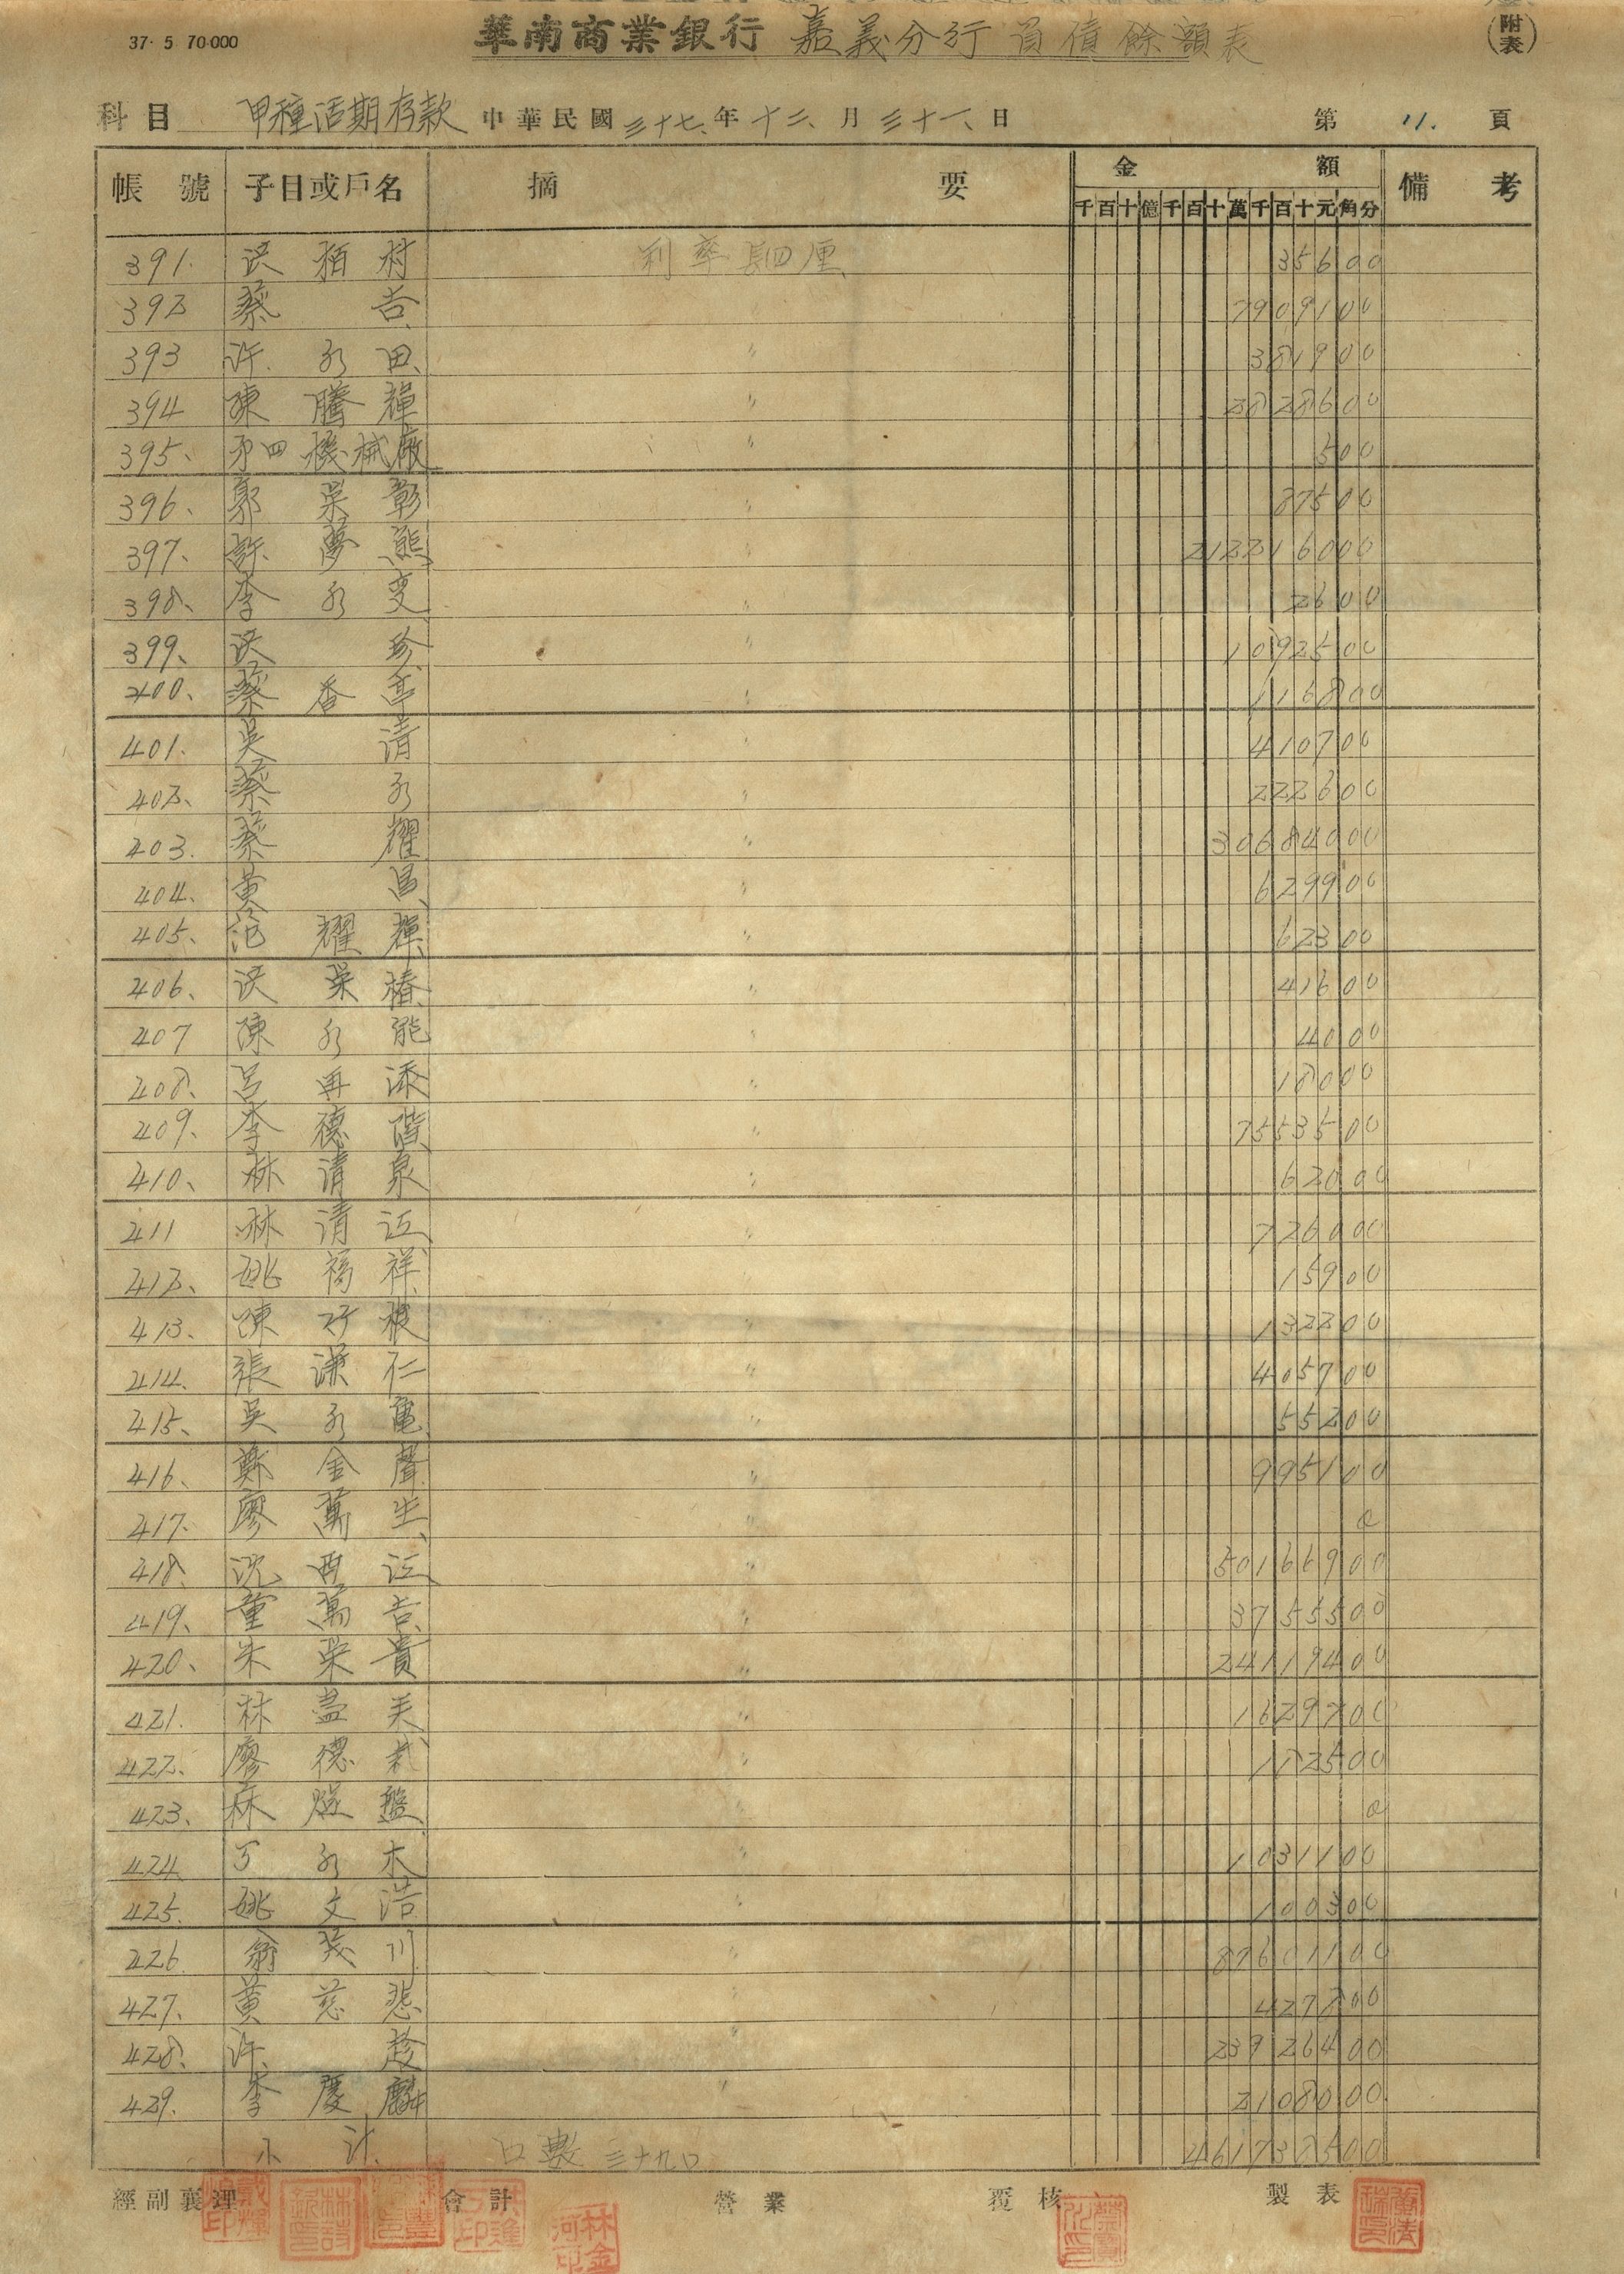 37· 5 70·000
華南商業銀行 嘉義分行 負債餘額表
(附表)
科目 甲種活期存款 中華民國三十七年十二月三十一日 第 11. 頁
帳號 子目或戶名 摘要 金額 備考
千百十億千百十萬千百十元角分
391. 洪栢村 利率 四厘 35600
392 蔡吉 〃 7909100
393 許永田 〃 381900
394 陳騰輝 〃 2828600
395、 第四機械廠 〃 500
396、 郭榮彰 〃 87500
397、 許夢熊 〃 212216000
398、 李永變 〃 2600
399、 洪珍 〃 1092500
400、 蔡香亭 〃 116800
401. 吳清 〃 410700
402、 蔡永 〃 222600
403. 蔡耀 〃 30684000
404. 黃昌 〃 629900
405、 范耀輝 〃 62300
406、 洪榮椿 〃 41600
407 陳永能 〃 4000
408、 呂再添 〃 18000
409、 李德諧 〃 7553500
410、 林清泉 〃 62000
411 林清江 〃 726000
412、 姚福祥 〃 15900
413、 陳 〃 132200
414. 張漢仁 〃 405700
415、 吳永龜 〃 55200
416、 鄭金聲 〃 995100
417. 廖萬生 〃 0
418. 沈再江 〃 50166900
419、 童萬吉 〃 3755500
420、 朱榮貴 〃 24119400
421. 林益美 〃 1629700
422、 廖德 〃 112500
423、 林 盤 〃 0
424. 丁永木 〃 1031100
425. 姚文浩 〃 100300
426. 翁茂川 〃 89601100
427、 黃慈悲 〃 427800
428、 許趁 〃 23926400
429. 李慶麟 〃 2108000
小計 口數 三十九口 461737500
經副襄理 會計 營業 覆核 製表
林金河印